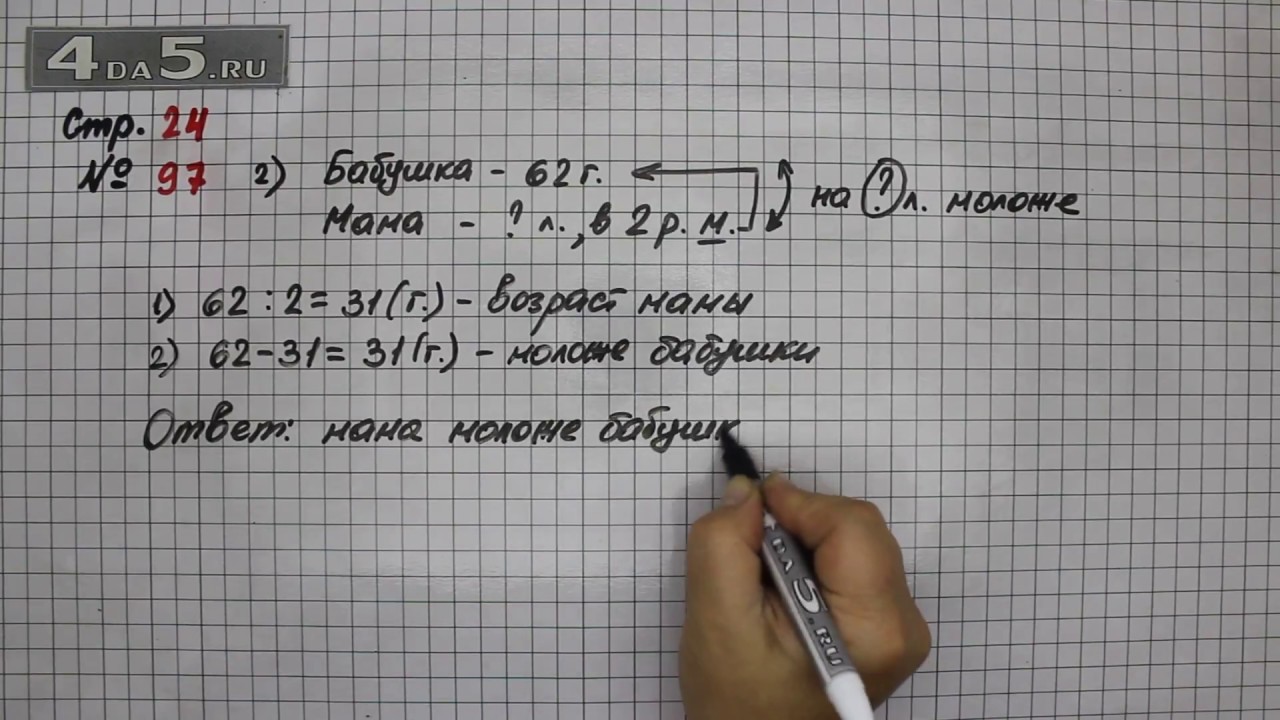 4DA5.RU
Стр. 24
№ 97 2) Бабушка - 62 г.
Мама - ? л., в 2 р. м.
на ? л. моложе
1) 62 : 2 = 31 (г.) - возраст мамы
2) 62 - 31 = 31 (г.) - моложе бабушки
Ответ: мама моложе бабушк
DA5.RU